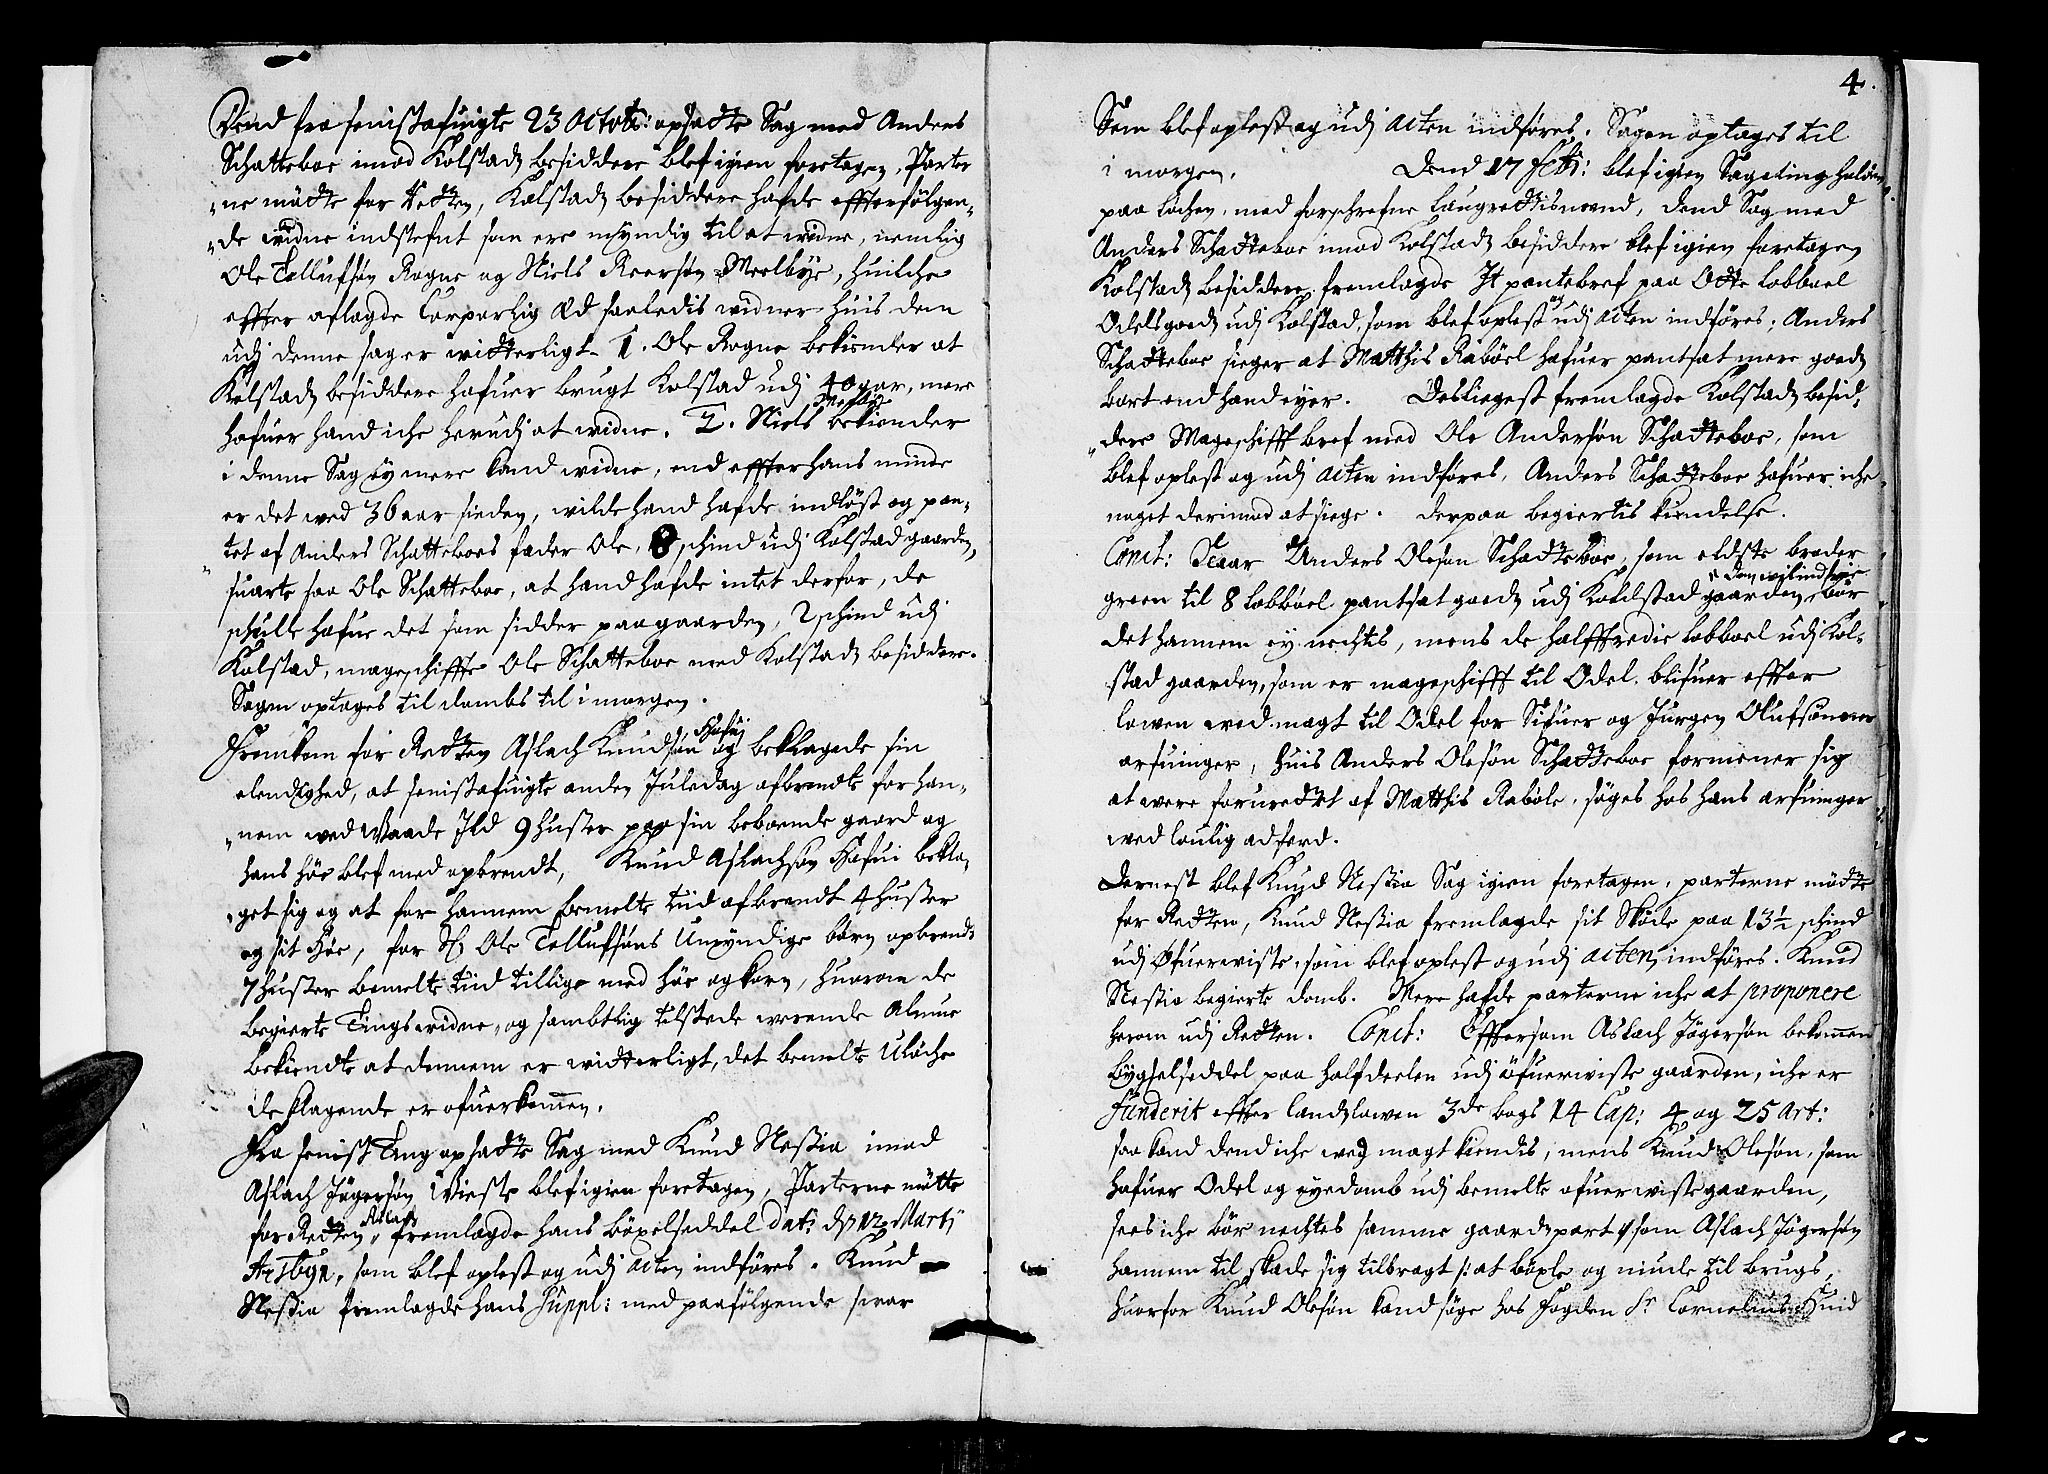 Dend fra senistafuigte 23 Octob: opsadte Sag med Anders
Schatteboe imod Kolstads besiddere blef igien foretagen, Parter
ne mödte for Retten, Kolstads besiddere hafde effterfölgen-
de widne indstefnt som ere myndig til at widne, nemlig
Ole Tollufsön Rogne og Niels Roersön Meelbye, huilche
effter aflagde Corporlig Eed saaledis widner huis dem
udj denne sag er widterligt. 1. Ole Rogne bekiender at
Kolstads besiddere hafuer brugt Kolstad udj 40 aar, mere
hafuer hand iche herudj at widne. 2. Niels Melbye bekiender
i denne Sag ey mere kand widne, end effter hans minde
er det wed 36 aar siden, wilde hand hafde indlöst og pan-
tet af Anders Schatteboes fader Ole, 8 schind udj Kolstad gaarden,
suarte saa Ole Schatteboe, at hand hafde intet derfor, de
schulle hafue det som sidder paa gaarden, 2 schind udj
Kolstad, mageschiffte Ole Schatteboe med Kolstads besiddere.
Sagen optages til dombs til i morgen.
Fremkom for Retten Aslach Knudsön Hafui og beklagede sin
elendighed, at senistafuigte anden Juledag afbrendte for han-
nem wed Waade Ild 9 huster paa sin beboende gaard og
hans höe blef med opbrendt, Knud Aslachsön Hafui bekla-
get sig og at for hannem bemelte tiid afbrendt 4 huster
og sit Höe, for Sl Ole Tollufsöns Umyndige börn opbrendt
7 huster bemelte tiid tillige med höe og korn, huorom de
begierte Tingswidne, og sambtlig tilstede werende Almue
bekiendte at dennem er widterligt, det bemelte Ulöche
de klagende er ofuerkommen.
Fra senist Ting opsadte Sag med Knud Neßia imod
Aslach Jögersön Wieste blef igien foretagen, Parterne mötte
for Retten, Aslach fremlagde hans böxelseddel dat: d 12 Martj
, som blef oplest og udj acten indföres. Knud
Neßia fremlagde hans Suppl: med paafölgende swar
4.
Som blef oplest og udj acten indföres. Sagen optages til
i morgen. Dend 17 Feb: blef igien Sageting holden
paa Lochen, med forschrefne Laugrettismend, dend Sag med
Anders Schatteboe imod Kolstads besiddere blef igien foretagen
Kolstads besiddere fremlagde It pantebref paa Otte Løbboel
Odelsgods udj Kolstad, som blef oplest og udj acten indföres. Anders
Schatteboe sieger at Matthis Raböel hafuer pantsat mere gods
bort end hand eyer. Desliegest fremlagde Kolstads besid-
dere Mageschifft bref med Ole Andersön Schatteboe, som
blef oplest og udj acten indföres, Anders Schatteboe hafuer iche
noget derimod at siege. derpaa begiertis kiendelse.
Conct: Saasom Anders Olesön Schatteboe, som eldste broder
green til 8 Løbböel pantsat gods udj Kolstad gaarden, dem wil indfrie, bör
det hannem ey nechtes, mens de halffredie løbboel udj Kol-
stad gaarden, som er mageschifft til Odel, blifuer effter
lowen wed magt til Odel for Sifuer og Jurgen Olufsönners
arfuinger, huis Anders Olesön Schatteboe formener sig
at were foruredtet af Matthis Raböle, söges hos hans arfuinger
wed lowlig adferd.
Dernest blef Knud Neßia Sag igien foretagen, parterne mödte
for Retten, Knud Neßia fremlagde sit Sköde paa 13½ schind
udj Öfuerwiste, som blef oplest og udj acten indföres. Knud
Neßia begierte domb. Mere hafde parterne iche at proponere
herom udj Retten. Conct: Effterson Aslach Jögersön bekommen
bygselseddel paa halfdeelen udj öfuerwiste gaarden, iche er
funderit effter Landslowen 3de bogs 14 Cap: 4 og 25 Art:
saa kand dend iche wed magt kiendis, mens Knud Olesön, som
hafuer Odel og eyedomb udj bemelte ofuerwiste gaarden,
sees iche bör nechtes samme gaardspart som Aslach Jögersön
hannem til skade sig tilbragt at böxle og niude til brugs,
huorfor Knud Olesön kand söge hos Fogden Sr Cornelius Huid